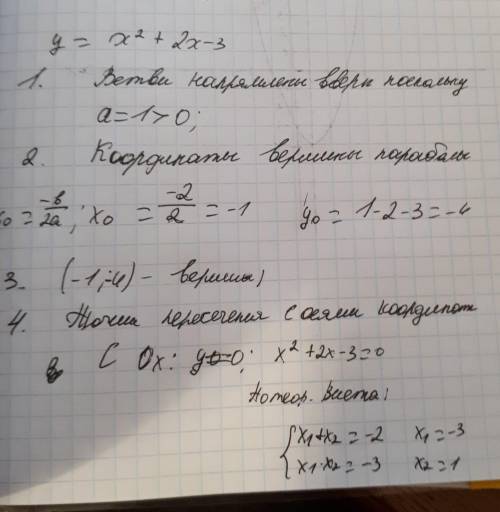 y = x² + 2x - 3
1. Ветви направлены вверх поскольку
a = 1 > 0;
2. Координаты вершины параболы
x₀ = -b/2a; x₀ = -2/2 = -1 y₀ = 1 - 2 - 3 = -4
3. (-1; -4) - вершины;
4. Точки пересечения с осями координат
С Ox: y = 0; x² + 2x - 3 = 0
По теор. Виета:
{ x₁ + x₂ = -2 x₁ = -3
{ x₁ · x₂ = -3 x₂ = 1